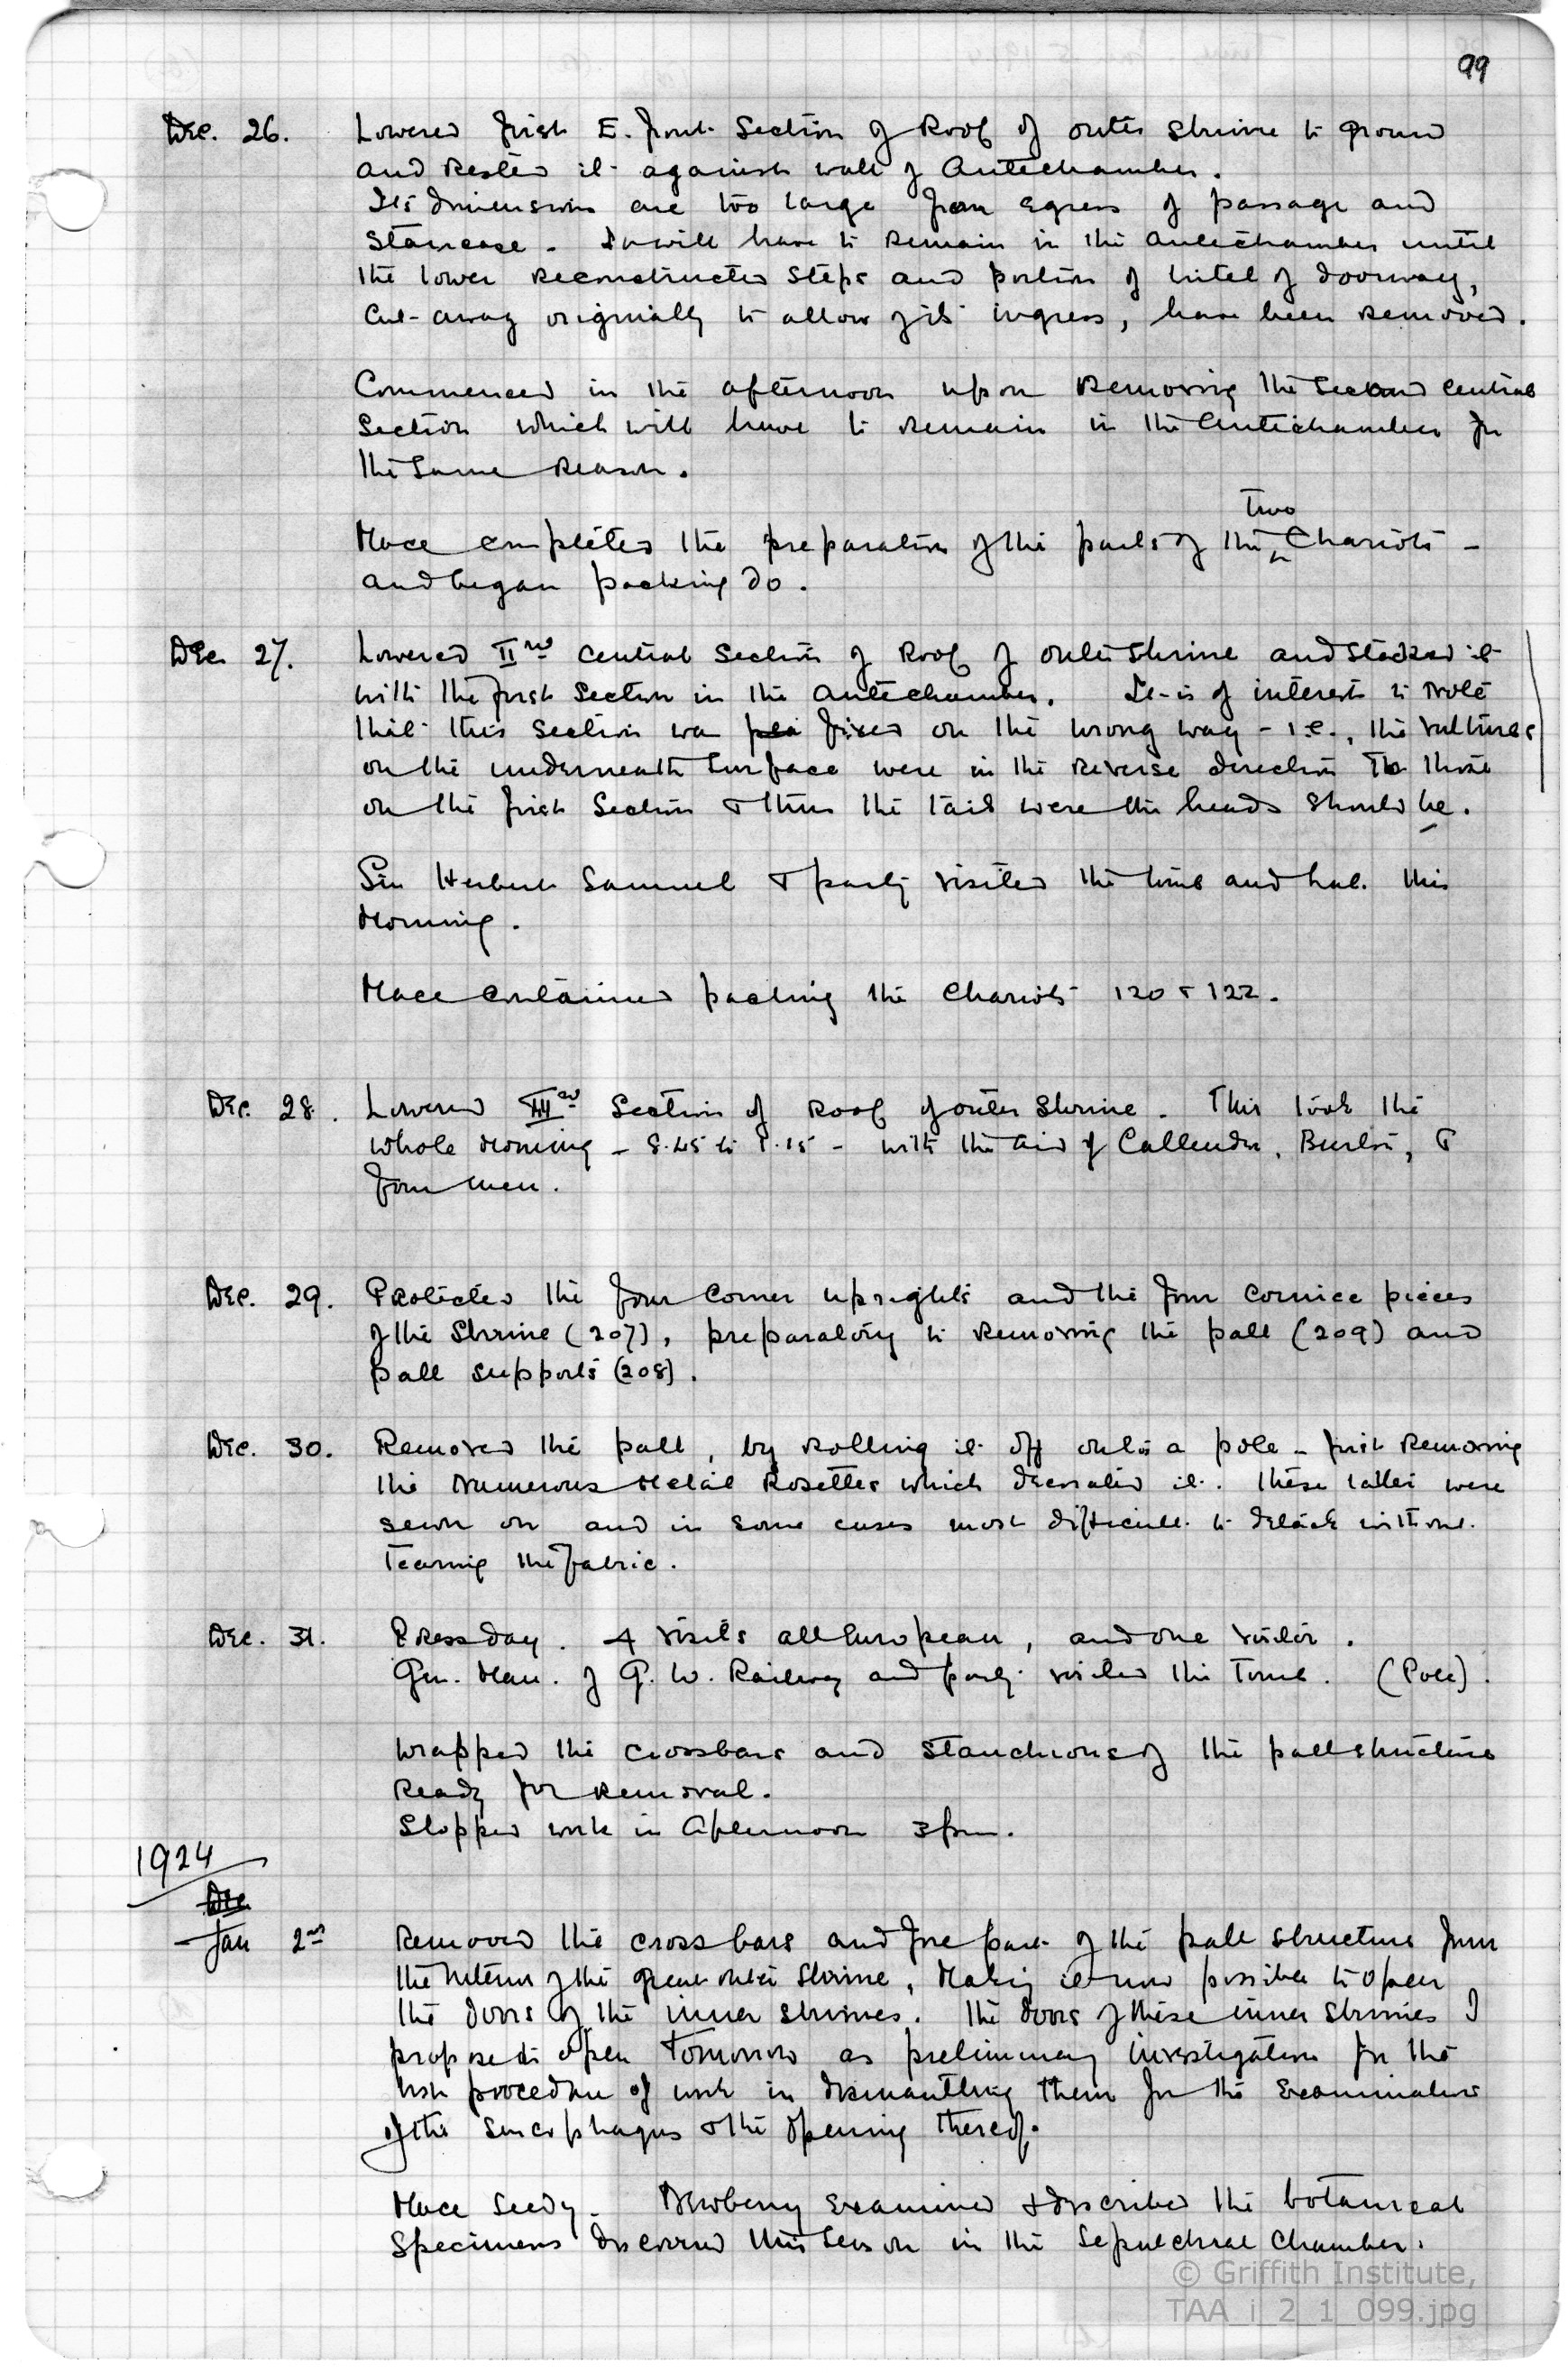 99
Dec. 26. Lowered first E. front Section of Roof of outer Shrine to ground
and Rested it against wall of Antechamber.
Its dimensions are too large for egress of passage and
Staircase - & will have to Remain in the Antechamber until
the lower Reconstructed Steps and portion of lintel of doorway,
cut-away originally to allow of its ingress, have been Removed.
Commenced in the afternoon upon Removing the Second Central
Section which will have to Remain in the Antechamber for
the Same Reason.
Two
Mace completed the preparation of the parts of the ^ Chariots -
and began packing do.
Dec. 27. Lowered IInd Central Section of Roof of outer Shrine and Stacked it
with the first Section in the Antechamber. It is of interest to Note
that this Section was fixed on the wrong way - i.e., the Vultures
on the underneath Surface were in the Reverse direction To those
on the first Section & thus the tails were the heads Should be.
Sir Herbert Samuel & party Visited the tomb and Lab. this
Morning.
Mace continued packing the Chariots 120 & 122.
Dec. 28. Lowered IIIrd Section of Roof of outer Shrine. This took the
Whole Morning - 8.45 to 1.15 - with the aid of Callender, Burton, &
four men.
Dec. 29. Protected the four Corner uprights and the four Cornice pieces
of the Shrine (207), preparatory to Removing the pall (209) and
pall Supports (208).
Dec. 30. Removed the pall, by Rolling it off onto a pole - first Removing
the Numerous Metal Rosettes which decorated it. These latter were
Sewn on and in Some cases most difficult to detach without
Tearing the fabric.
Dec. 31. Press day. 4 Visits all European, and one Visitor.
Gen. Man. of G. W. Railway and party visited the Tomb. (Pole).
Wrapped the Crossbars and Stanchions of the pall structure
Ready for Removal.
Stopped work in Afternoon 3 pm.
1924
Dec
Jan 2nd Removed the cross bars and fore part of the pall structure from
the Interior of the great outer Shrine, Making it now possible to open
the doors of the inner Shrines. The doors of these inner Shrines I
propose to open Tomorrow as preliminary investigation for the
best procedure of work in dismantling them for the Examination
of the Sarcophagus & the Opening thereof.
Mace Seedy. Newberry Examined & described the botanical
Specimens discovered this Season in the Sepulchral Chamber.
© Griffith Institute,
TAA_i_2_1_099.jpg